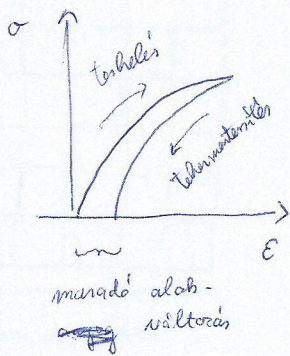 σ
terhelés
tehermentesítés
ε
maradó alak-
változás